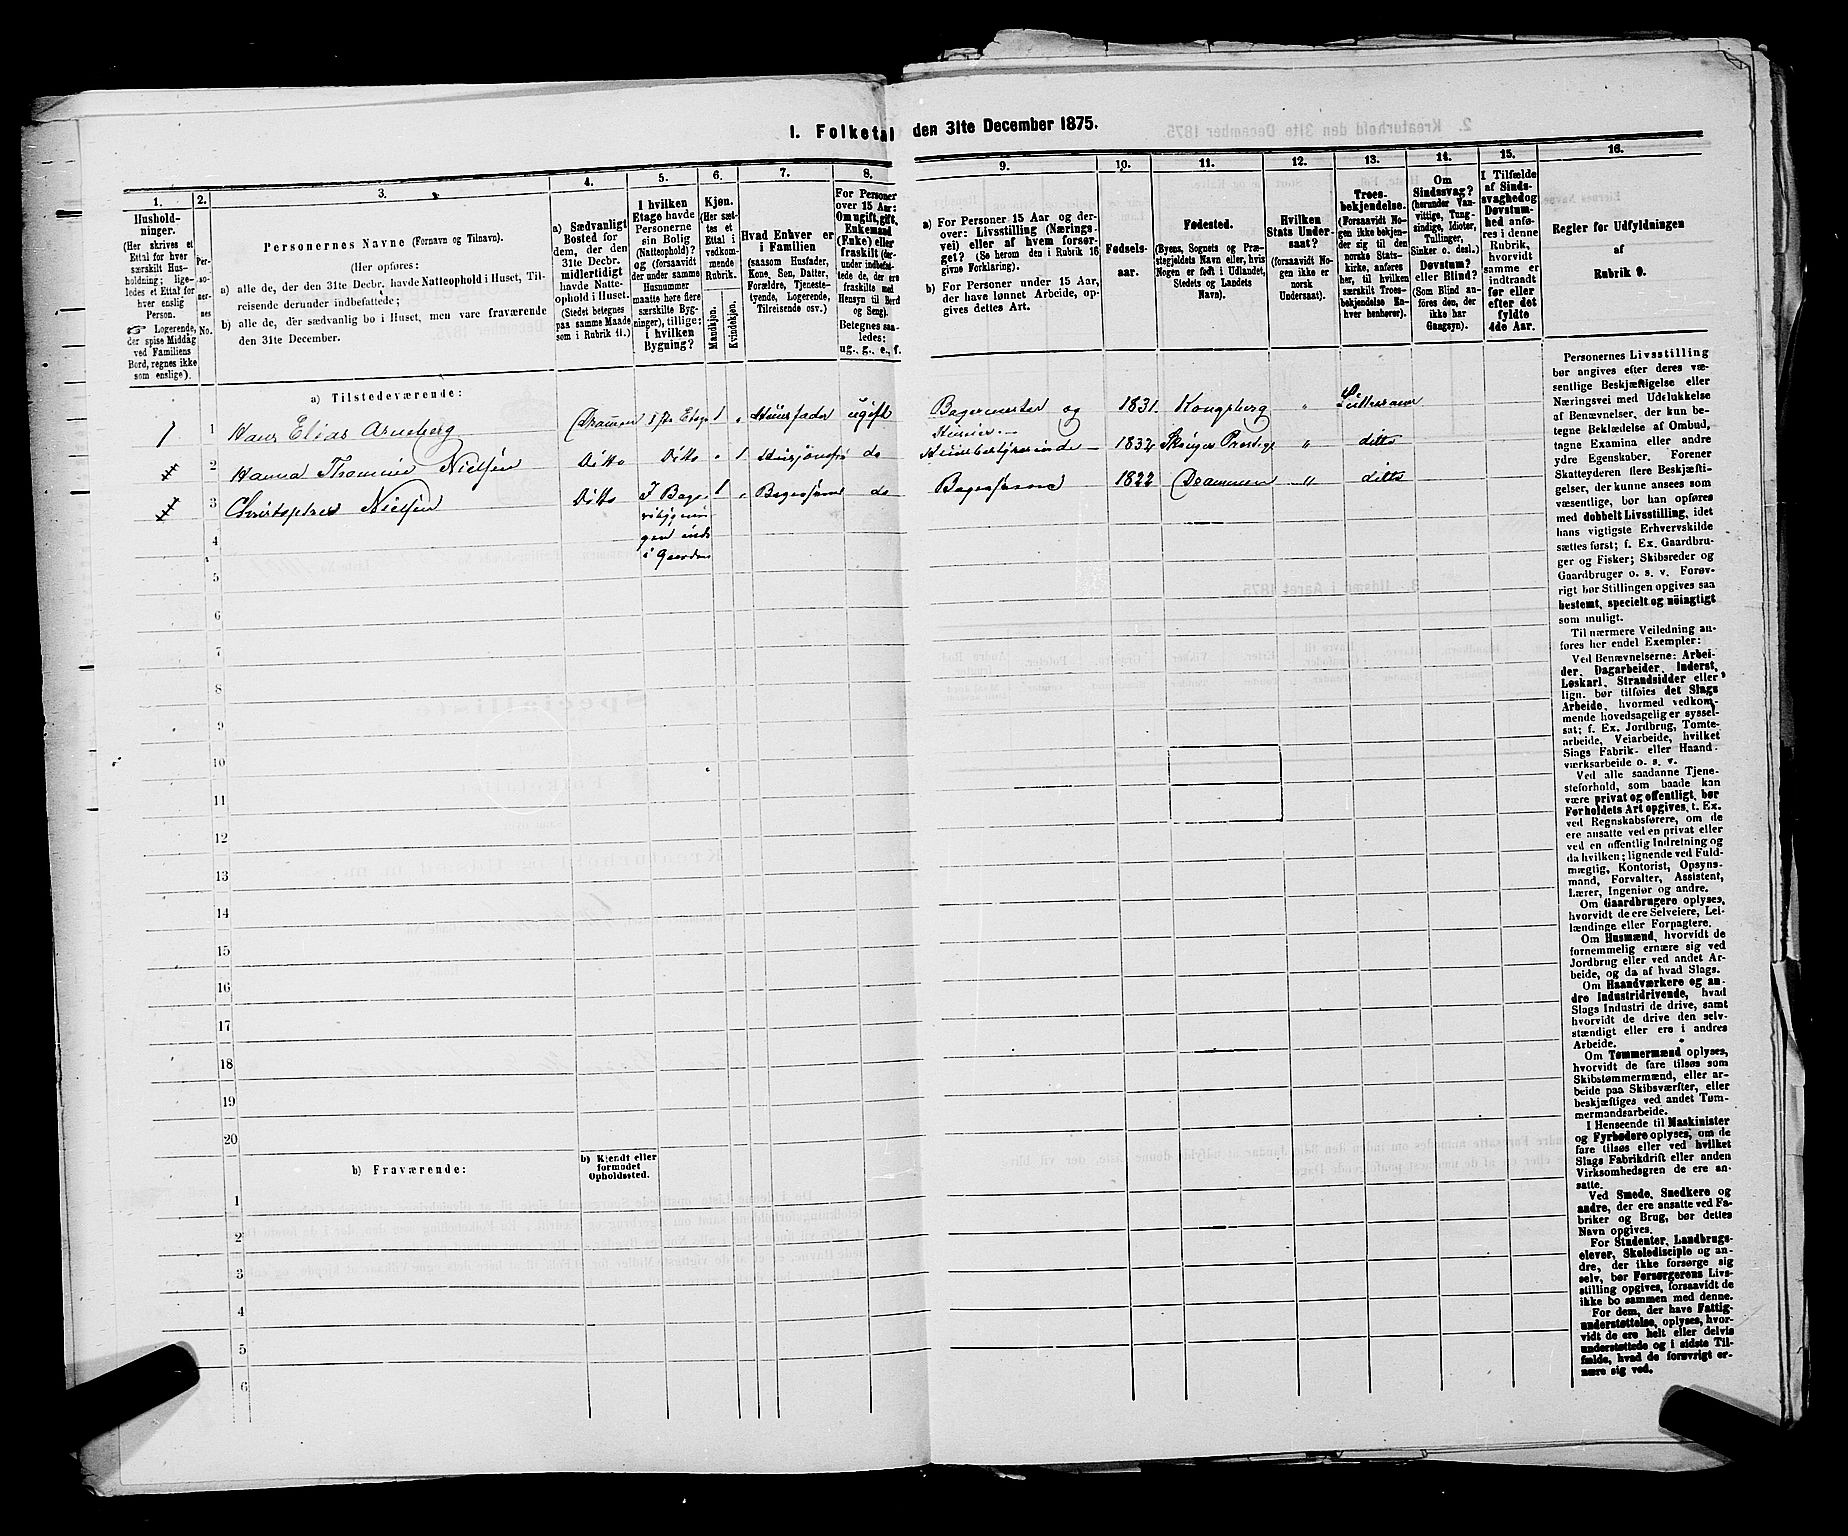 I. Folketal den 31te December 1875.
1.
Hushold-
ninger.
(Her skrives et
Ettal for hver
særskilt Hus-
holdning; lige-
ledes et Ettal for
hver enslig
Person.
☞ Logerende,
der spise Middag
ved Familiens
Bord, regnes ikke
som enslige).
2.
Per-
so-
ner-
nes
No.
3.
Personernes Navne (Fornavn og Tilnavn).
(Her opføres:
a) alle de, der den 31te Decbr. havde Natteophold i Huset, Til-
reisende derunder indbefattede;
b) alle de, der sædvanlig bo i Huset, men vare fraværende
den 31te December.
4.
a) Sædvanligt
Bosted for
dem, der den
31te Decbr.
midlertidigt
havde Natte-
ophold i Huset.
(Stedet betegnes
paa samme Maade
som i Rubrik 11.)
5.
I hvilken
Etage havde
Personerne
sin Bolig
(Natteophold)?
og (forsaavidt
der under samme
Husnummer
maatte høre flere
særskilte Byg-
ninger), tillige:
i hvilken
Bygning?
6.
Kjøn.
(Her sæt-
tes et
Ettal i
vedkom-
mende
Rubrik.
Mandkjøn.
Kvindekjøn.
7.
Hvad Enhver er
i Familien
(saasom Husfader,
Kone, Søn, Datter,
Forældre, Tjeneste-
tyende, Logerende,
Tilreisende osv.)
8.
For Personer
over 15 Aar:
Om ugift, gift,
Enkemand
(Enke) eller
fraskilt (der-
under indbefat-
tede de, der ere
fraskilte med
Hensyn til Bord
og Seng).
Betegnes saa-
ledes:
ug., g., e., f.
9.
a) For Personer 15 Aar og der-
over: Livsstilling (Nærings-
vei) eller af hvem forsør-
get? (Se herom den i Rubrik 16
givne Forklaring).
b) For Personer under 15 Aar,
der have lønnet Arbeide, op-
gives dettes Art.
10.
Fødsels-
aar.
11.
Fødested.
(Byens, Sognets og Præ-
stegjeldets Navn eller, hvis
Nogen er født i Udlandet,
Stedets og Landets
Navn).
12.
Hvilken
Stats Under-
saat?
(forsaavidt No-
gen ikke er
norsk
Undersaat).
13.
Troes-
bekjendelse.
(Forsaavidt No-
gen ikke bekjen-
der sig til den
norske Stats-
kirke, anføres
her, til hvilken
særskilt Troes-
bekjendelse En-
hver henhører).
14.
Om
Sindssvag?
(herunder Van-
vittige, Tung-
sindige, Idioter,
Tullinger,
Sinker o. desl.)
Døvstum?
eller Blind?
(Som Blind an-
føres den, der
ikke har
Gangsyn).
15.
I Tilfælde
af Sinds-
svaghed og
Døvstum-
hed anfø-
res i denne
Rubrik,
hvorvidt
samme er
indtraadt
før eller
efter det
fyldte
4de Aar.
16.
Regler for Udfyldningen
af
Rubrik 9.
a) Tilstedeværende:
1 1 Hans Elias Arneberg Drammen 1ste Etage 1 „ Huusfader ugift Bagermester og 1831. Kongsberg „ Lutheraner
2 Hanna Thomine Nielsen Ditto Ditto „ 1 do 1832 „ ditto
3 Nielsen Ditto I Bage- 1 „ Bagersvend do Bagersvend 1822 Drammen „ ditto
4
i Gaarden
5
6
7
8
9
10
11
12
13
14
15
16
17
18
19
20
b) Fraværende:
b) Kjendt eller
formodet
Opholdssted.
1
2
3
4
5
6
Personernes Livsstilling
bør angives efter deres væ-
sentlige Beskjæftigelse eller
Næringsvei med Udelukkelse
af Benævnelser, der kun be-
tegne Beklædelse af Ombud,
tagne Examina eller andre
ydre Egenskaber. Forener
Skatteyderen flere Beskjæfti-
gelser, der kunne ansees som
væsentlige, bør han opføres
med dobbelt Livsstilling, idet
hans vigtigste Erhvervskilde
sættes først; f. Ex. Gaardbru-
ger og Fisker; Skibsreder og
Gaardbruger o. s. v. Forøv-
rigt bør Stillingen opgives saa
bestemt, specielt og nöiagtigt
som muligt.
Til nærmere Veiledning an-
føres her endel Exempler:
Ved Benævnelserne: Arbei-
der, Dagarbeider, Inderst,
Løskarl, Strandsidder eller
lign. bør tilføies det Slags
Arbeide, hvormed vedkom-
mende hovedsagelig er syssel-
sat; f. Ex. Jordbrug, Tomte-
arbeide, Veiarbeide, hvilket
Slags Fabrik- eller Haand-
værksarbeide o. s. v.
Ved alle saadanne Tjene-
steforhold, som baade kan
være privat og offentligt, bør
Forholdets Art opgives, t. Ex.
ved Regnskabsførere, om de
ere ansatte ved en privat eller
ved en offentlig Indretning og
da hvilken; lignende ved Fuld-
mægtig, Kontorist, Opsyns-
mand, Forvalter, Assistent,
Lærer, Ingeniør og andre.
Om Gaardbrugere oplyses,
hvorvidt de ere Selveiere, Lei-
lændinge eller Forpagtere.
Om Husmænd, hvorvidt de
fornemmelig ernære sig ved
Jordbrug eller ved andet Ar-
beide, og da af hvad Slags.
Om Haandværkere og an-
dre Industridrivende, hvad
Slags Industri de drive, samt
hvorvidt de drive den selv-
stændigt eller ere i andres
Arbeide.
Om Tømmermænd oplyses,
hvorvidt de fare tilsøs som
Skibstømmermænd, eller ar-
beide paa Skibsværfter, eller
beskjæftiges ved andet Tøm-
mermandsarbeide.
I Henseende til Maskinister
og Fyrbødere oplyses, om de
fare tilsøs eller ved hvilket
Slags Fabrikdrift eller anden
Virksomhedsgren de ere an-
satte.
Ved Smede, Snedkere og
andre, der ere ansatte ved Fa-
briker og Brug, bør dettes
Navn opgives.
For Studenter, Landbrugs-
elever, Skoledisciple og an-
dre, der ikke forsørge sig
selv, bør Forsørgerens Livs-
stilling opgives, forsaavidt de
ikke bo sammen med denne.
For dem, der have Fattig-
understøttelse, oplyses, hvor-
vidt de ere helt eller delvis
understøttede og i sidste Til-
fælde, hvad de forøvrigt er-
nære sig ved.